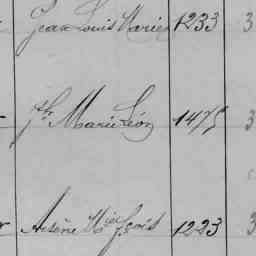 Jean Louis Marie 1233 3
Jh Marie Léon 1475 3
Arsène Mie Fçois 1223 3